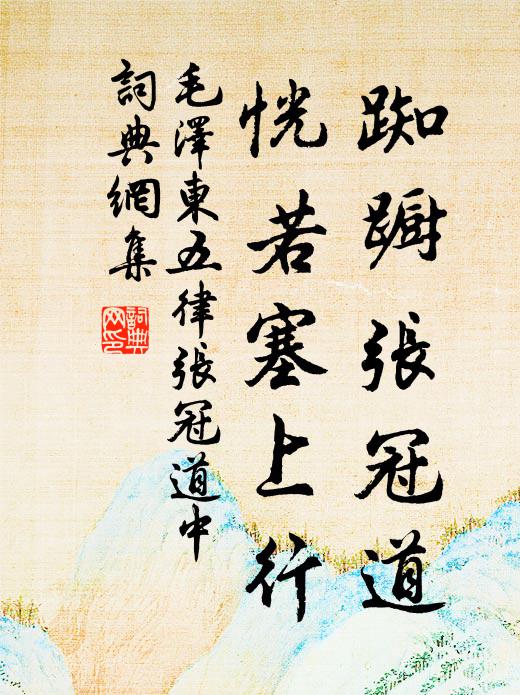 踟蹰張冠道
恍若塞上行
毛澤東五律張冠道中
詞典網集
詞典
网印